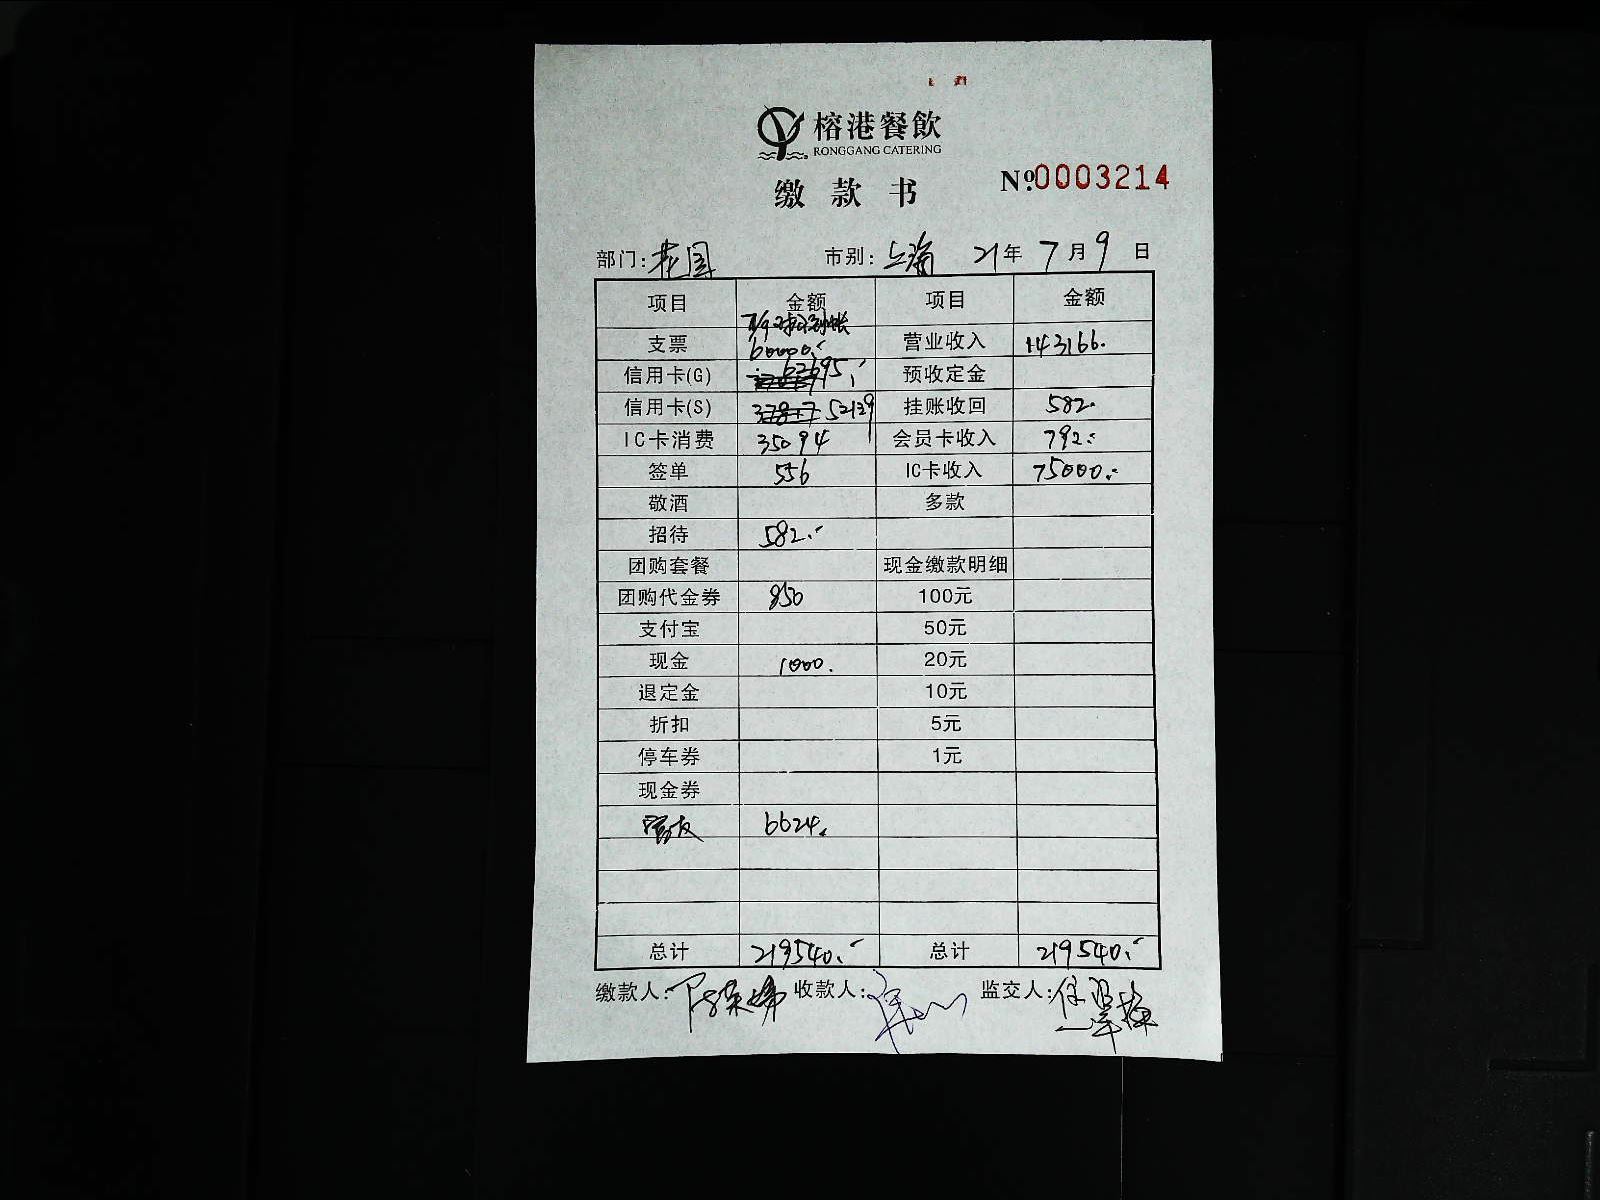 榕港餐飲
RONGGANG CATERING
缴款书
Nº0003214
部门：花园 市别：上海 21年7月9日
项目 金额 项目 金额
支票 7/9 60000.- 营业收入 143166.
信用卡(G) 62695.- 预收定金
信用卡(S) 52139 挂账收回 582.
IC卡消费 35094 会员卡收入 792.-
签单 556 IC卡收入 75000.-
敬酒 多款
招待 582.-
团购套餐 现金缴款明细
团购代金券 850 100元
支付宝 50元
现金 1000. 20元
退定金 10元
折扣 5元
停车券 1元
现金券
6624.
总计 219540.- 总计 219540.-
缴款人： 收款人： 监交人：